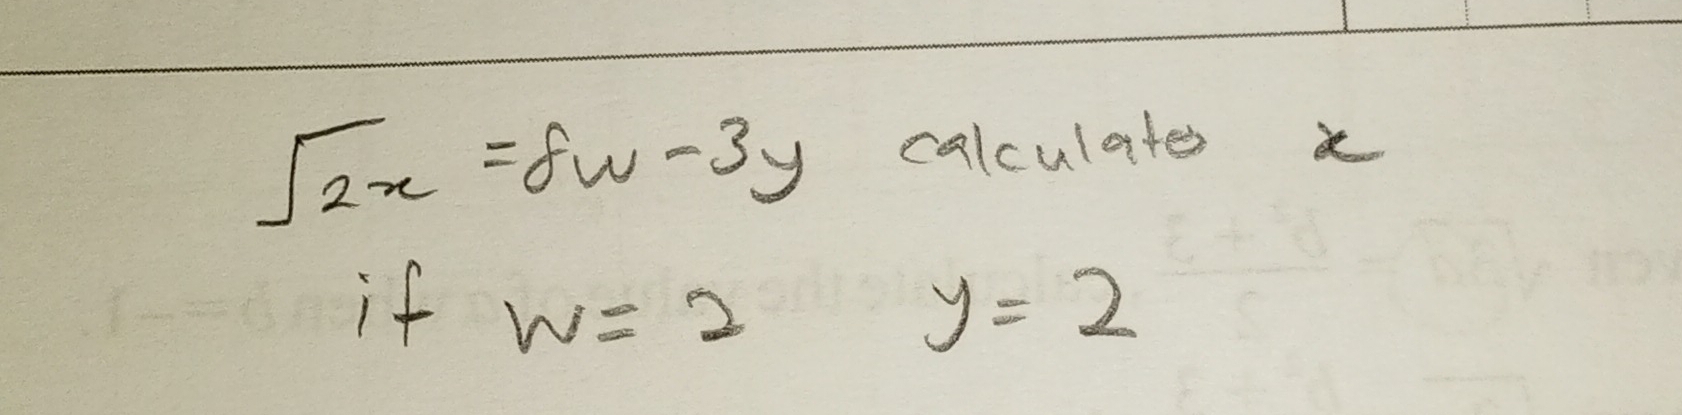 √2x = 8w - 3y calculate x
if w = 2 y = 2